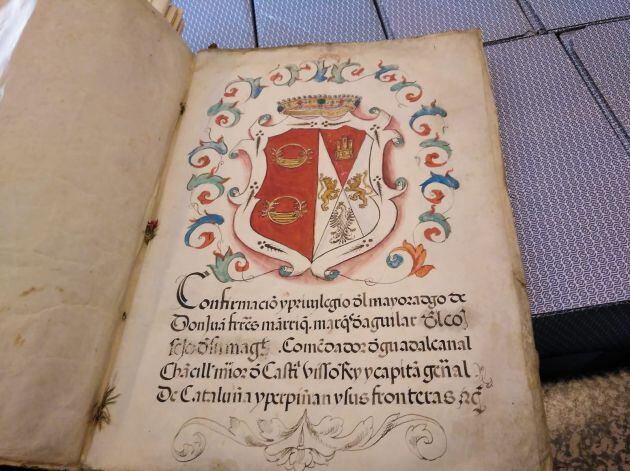 Confirmacio y privilegio dl mayoradgo de
Don Juã frrēs mārriq̃. marq̃s daguilar dl cō
sejo d su mag̃t. Comēdador d guadalcanal
Chãcill mior d Castl Visso Rey y capitã geñal
De Cataluña y perpiñan y sus fronteras